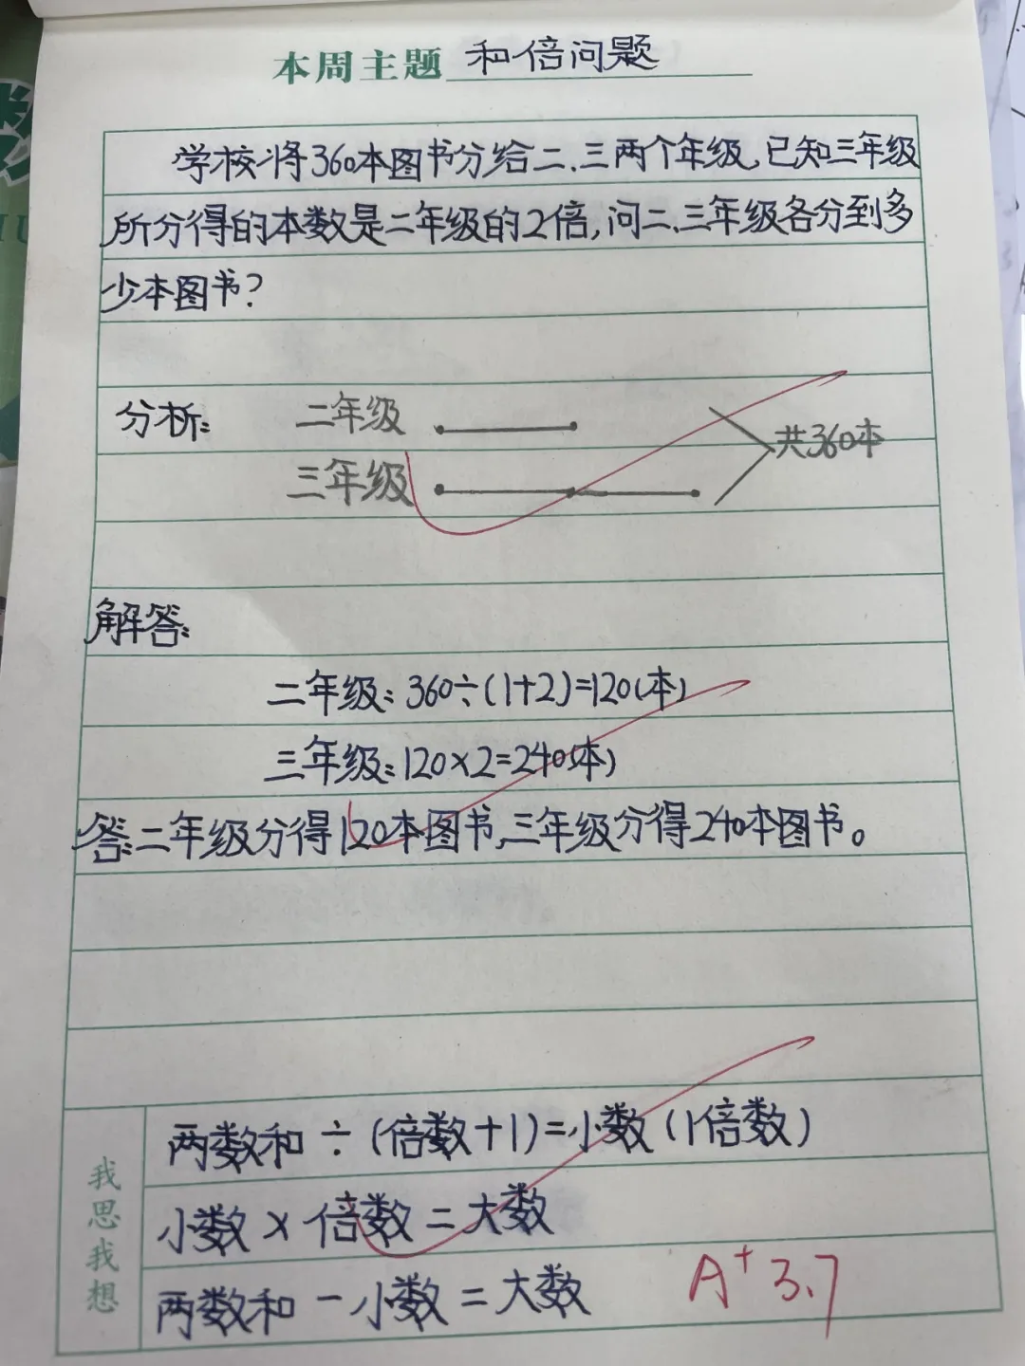 本周主题 和倍问题
学校将360本图书分给二、三两个年级,已知三年级
所分得的本数是二年级的2倍,问二、三年级各分到多
少本图书?
分析: 二年级
三年级
共360本
解答:
二年级:360÷(1+2)=120(本)
三年级:120×2=240(本)
答:二年级分得120本图书,三年级分得240本图书。
我思我想
两数和÷(倍数+1)=小数(1倍数)
小数×倍数=大数
两数和-小数=大数
A+ 3.7